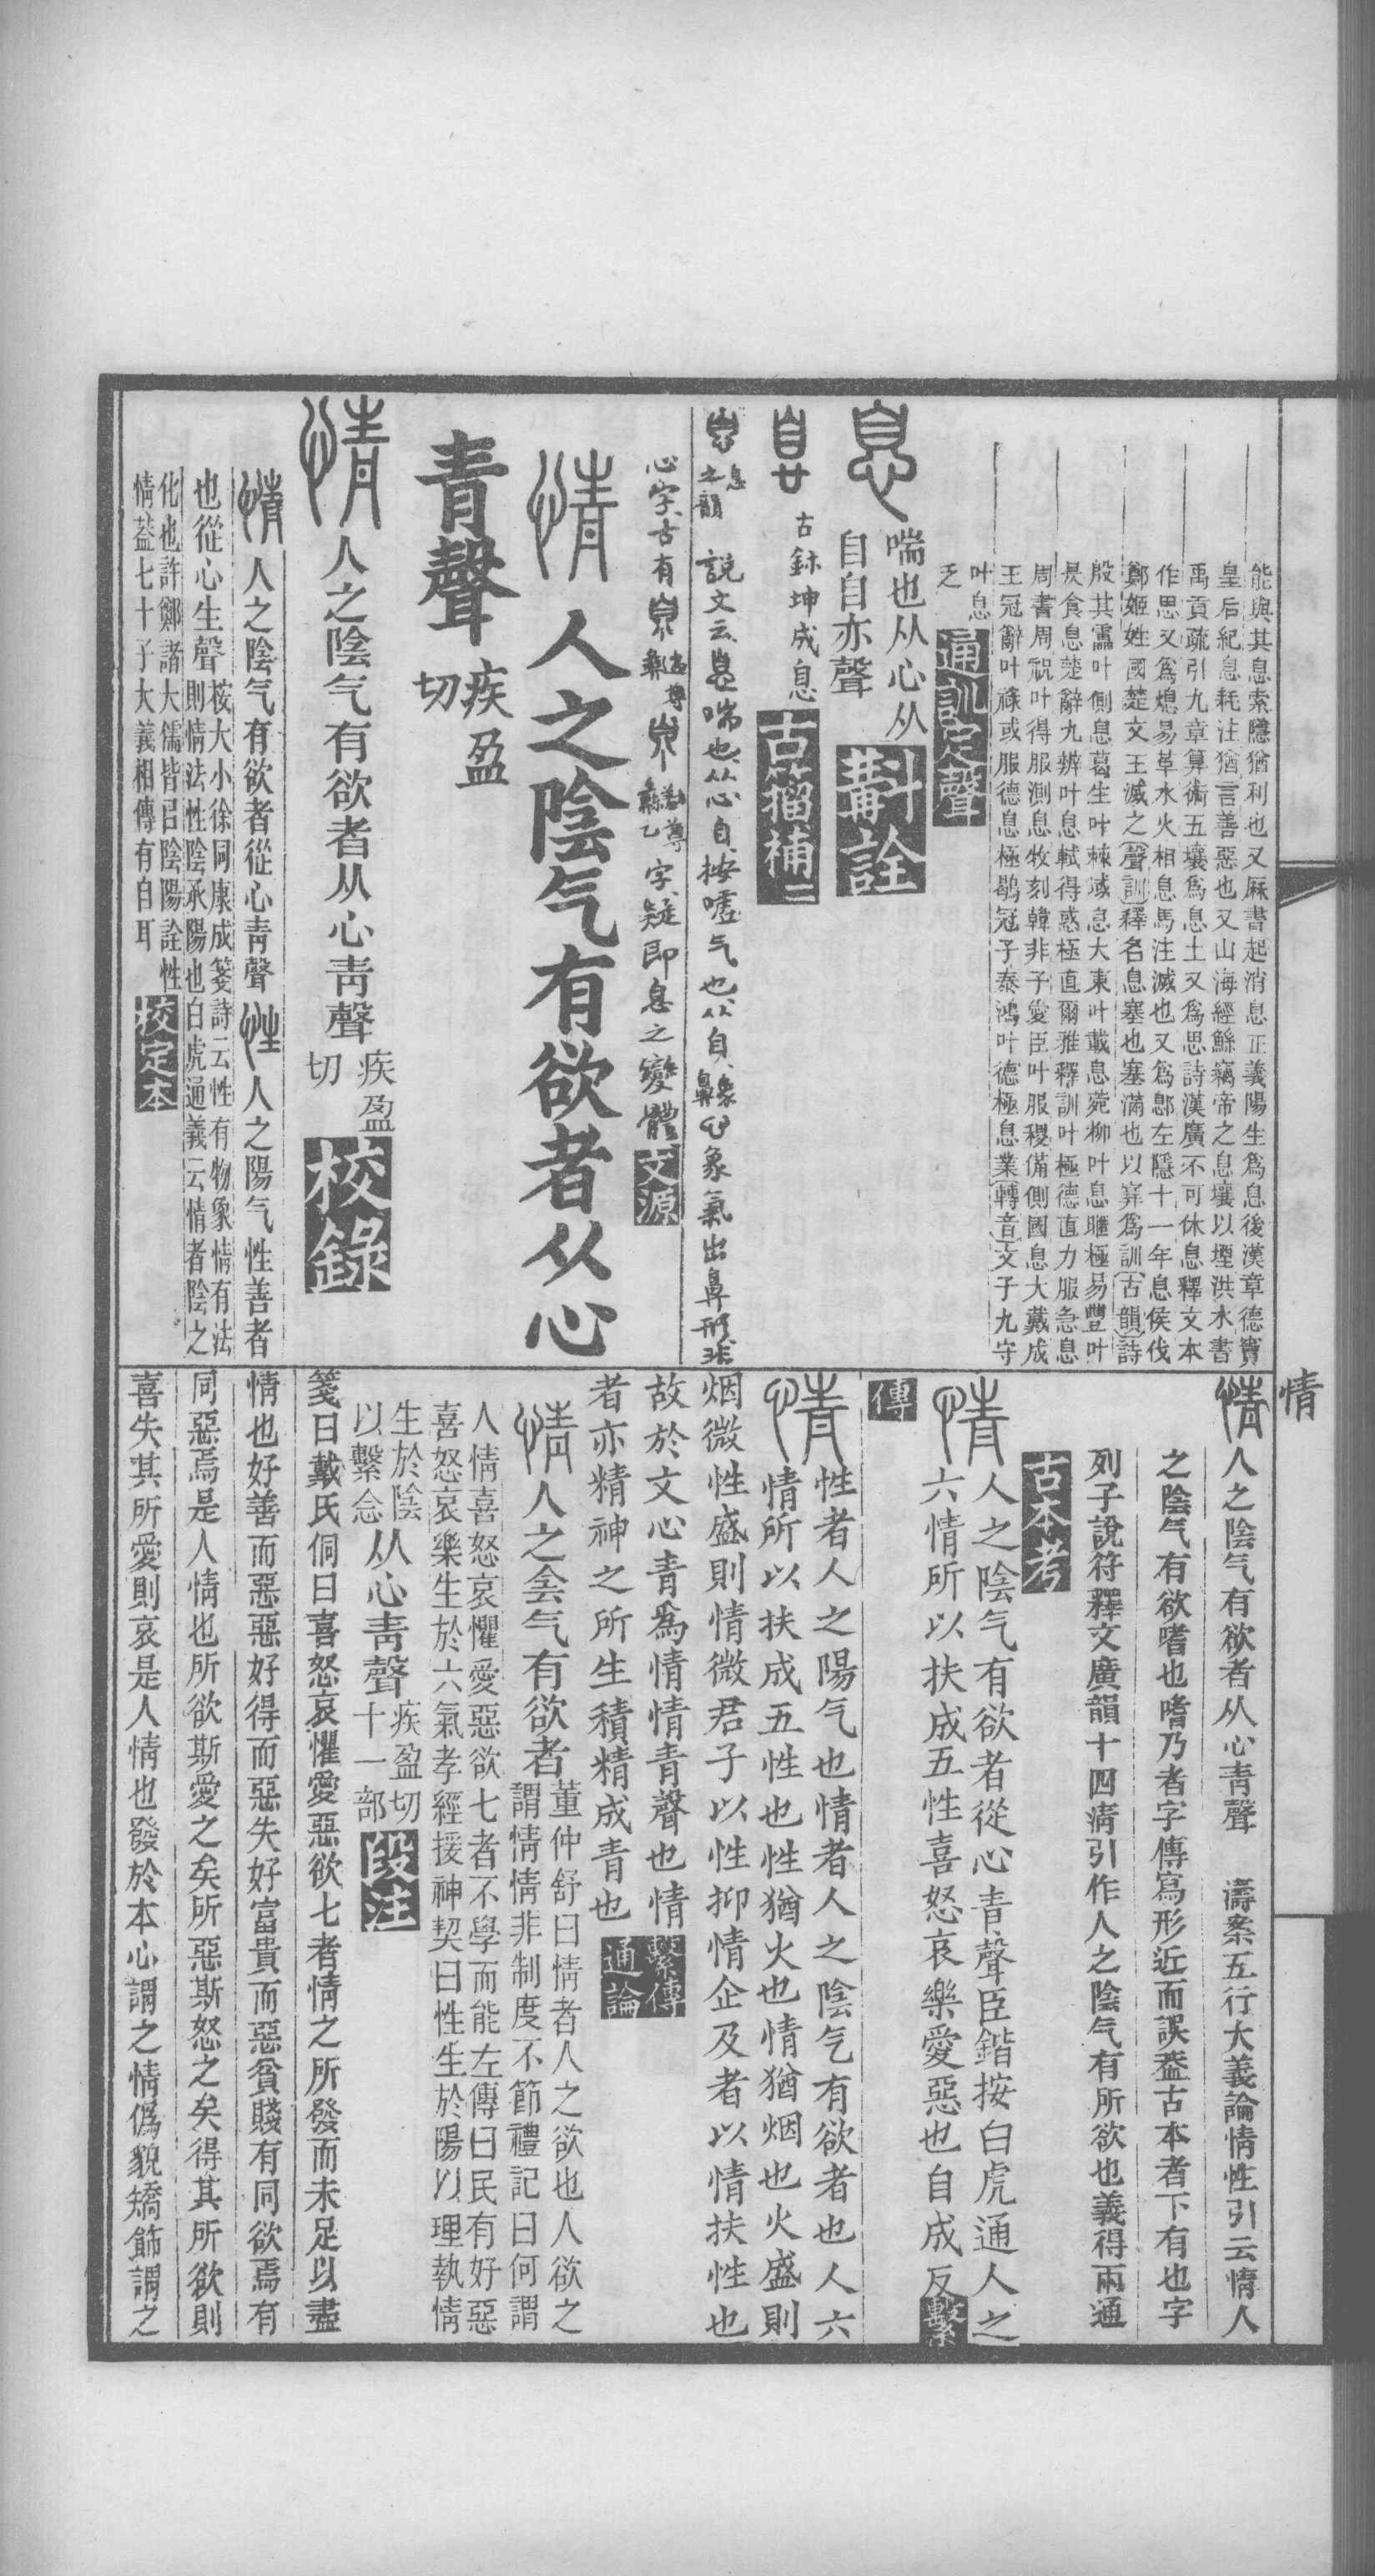 能與其息索隱猶利也又厤書起消息正義陽生爲息後漢章德竇
皇后紀息耗注猶言善惡也又山海經鯀竊帝之息壤以堙洪水書
禹貢疏引九章算術五壤爲息土又爲思詩漢廣不可休息釋文本
作思又爲熄易革水火相息馬注滅也又爲鄎左隱十一年息侯伐
鄭姬姓國楚文王滅之聲訓釋名息塞也塞滿也以寍爲訓古韻詩
殷其靁叶側息葛生叶棘域息大東叶載息菀柳叶息暱極易豐叶
昃食息楚辭九辨叶息軾得惑極直爾雅釋訓叶極德直力服急息
周書周祝叶得服測息牧刻韓非子愛臣叶服稷備側國息大戴成
王冠辭叶祿或服德息極鶡冠子泰鴻叶德極息業轉音文子九守
叶息
通訓定聲
息 喘也从心从
自自亦聲 斠詮
古鉢坤成息 古籀補二
息之韻 說文云息喘也从心自按嘘气也从自象鼻心象氣出鼻形非
心字古有 字疑卽息之變體 文源
情 人之陰气有欲者从心
青聲 疾盈切
情 人之陰气有欲者从心靑聲 疾盈切 校錄
情 人之陰气有欲者從心靑聲 性 人之陽气性善者
也從心生聲 桉大小徐同康成箋詩云性有物象情有法
則情法性陰承陽也白虎通義云情者陰之
化也許鄭諸大儒皆㠯陰陽詮性
情葢七十子大義相傳有自耳 校定本
情
情 人之陰气有欲者从心靑聲 濤案五行大義論情性引云情人
之陰气有欲嗜也嗜乃者字傳寫形近而誤葢古本者下有也字
列子說符釋文廣韻十四淸引作人之陰气有所欲也義得兩通
古本考
情 人之陰气有欲者從心青聲臣鍇按白虎通人之
六情所以扶成五性喜怒哀樂愛惡也自成反 繫
傳
情 性者人之陽气也情者人之陰气有欲者也人六
情所以扶成五性也性猶火也情猶烟也火盛則
烟微性盛則情微君子以性抑情企及者以情扶性也
故於文心青爲情情青聲也情
者亦精神之所生積精成青也 繫傳通論
情 人之侌气有欲者 董仲舒曰情者人之欲也人欲之
謂情情非制度不節禮記曰何謂
人情喜怒哀懼愛惡欲七者不學而能左傳曰民有好惡
喜怒哀樂生於六氣孝經援神契曰性生於陽以理執情
生於陰
以繫念 从心靑聲 疾盈切
十一部 段注
箋曰戴氏侗曰喜怒哀懼愛惡欲七者情之所發而未足以盡
情也好善而惡惡好得而惡失好富貴而惡貧賤有同欲焉有
同惡焉是人情也所欲斯愛之矣所惡斯怒之矣得其所欲則
喜失其所愛則哀是人情也發於本心謂之情僞貌矯飾謂之